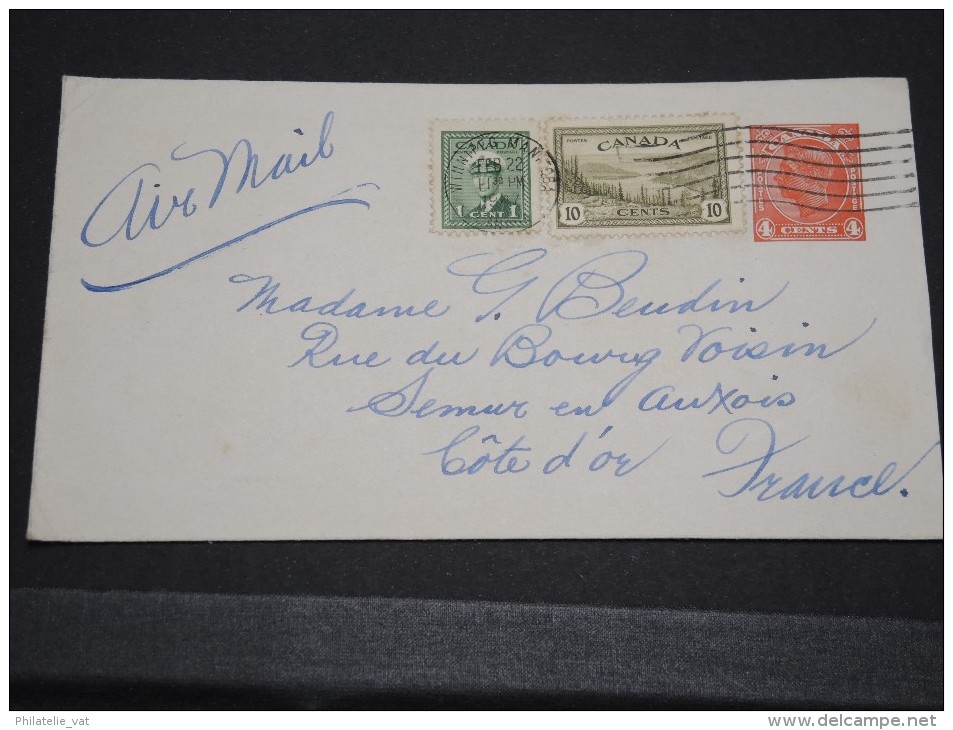 Air Mail
CANADA
1 CENT 1
WINNIPEG MAN.
FEB 22
PM
POSTES POSTAGE
CANADA
10 CENTS 10
CANADA
POSTES POSTAGE
4 CENTS 4
Madame G. Beudin
Rue du Bourg Voisin
Semur en Auxois
Côte d'or
France.
Philatelie_vat
http://www.delcampe.net